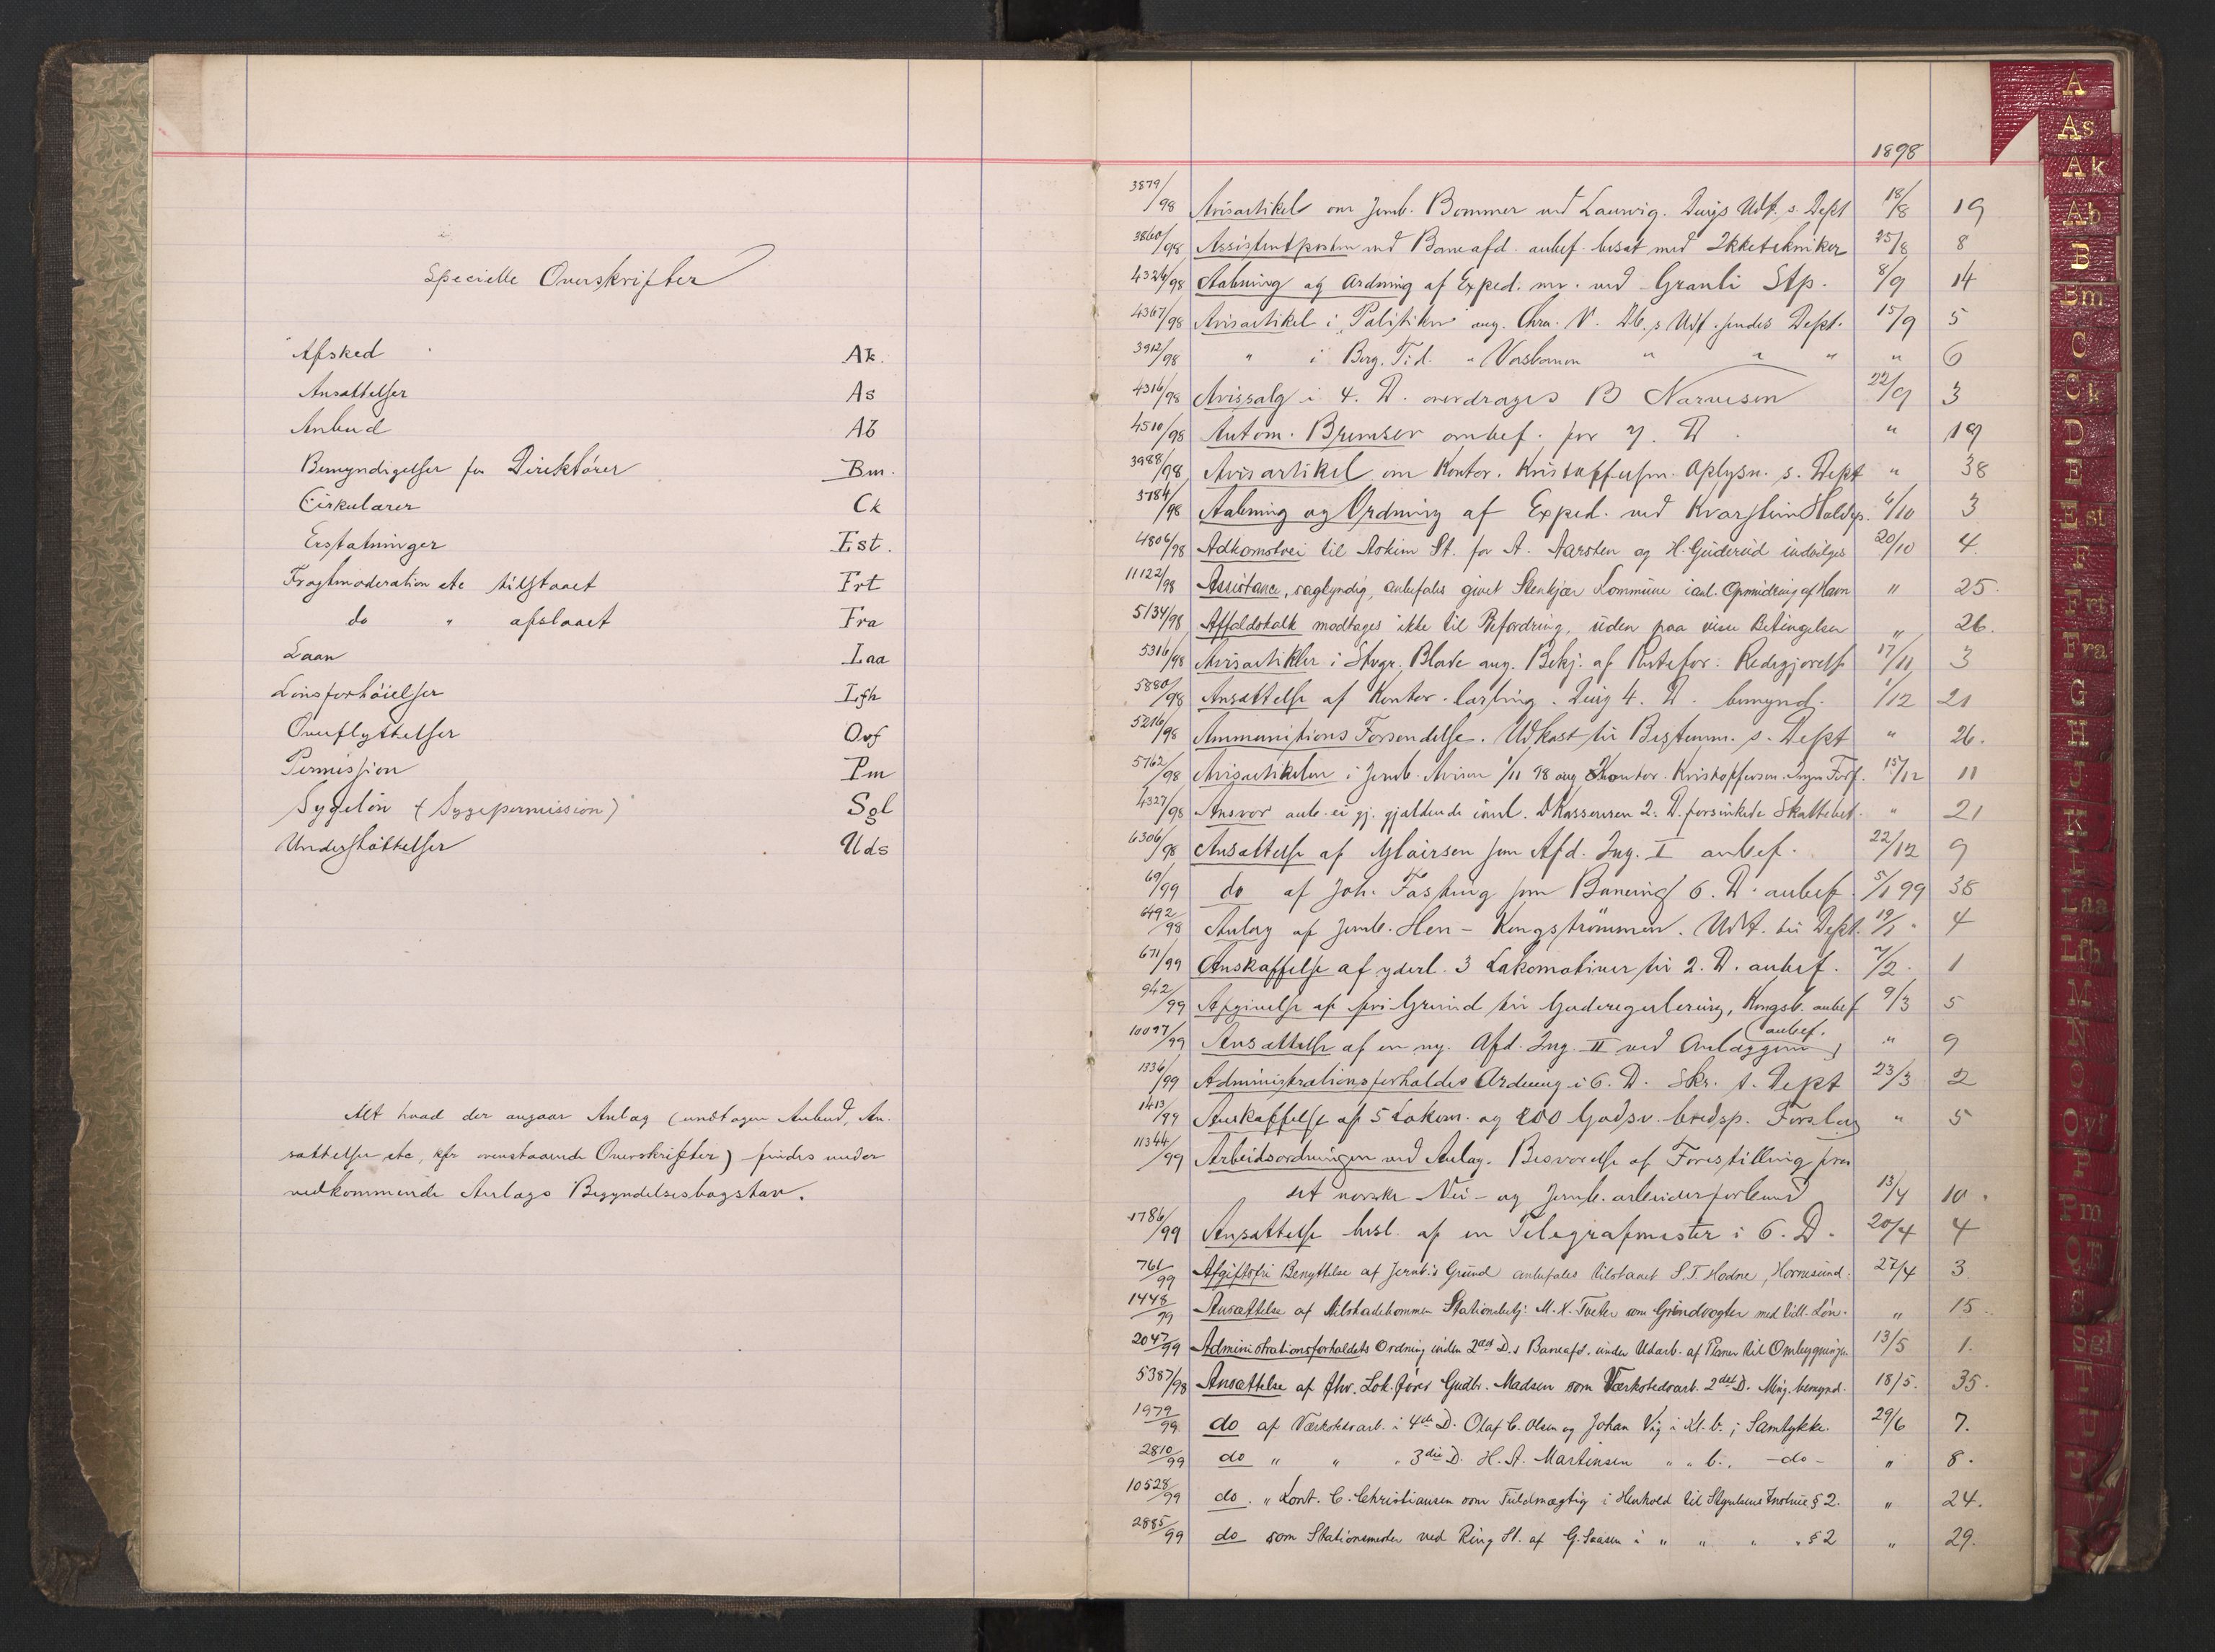 Specielle Overskrifter
Afsked Ak.
Ansættelser As
Anbud Ab
Bemyndigelser for Direktører Bm.
Cirkulærer Ck
Erstatninger Est.
Fragtmoderation etc tilstaaet Frt
do " afslaaet Fra
Laan Laa
Lønsforhøielser Lfh
Overflyttelser Ovf
Permission Pm
Sygeløn (Sygepermission) Sgl
Understøttelser Uds
Alt hvad der angaar Anlæg (undtagen Anbud, An-
sættelser etc, kfr ovenstaaende Overskrifter) findes under
vedkommende Anlægs Begyndelsesbogstav.
1898
3879/98 Avisartikel om Jernb. Bommer ved Laurvig. Dirigs Udt. s. Dept 18/8 19
3860/98 Assistentposten ved Baneafd. anbef. besat med Ikketekniker 25/8 8
4326/98 Aabning og Ordning af Exped. mv. ved Granli Stp. 8/9 14
4367/98 Avisartikel i "Politiken" ang. Chra. V. Db. s Udt. sendes Dept. 15/9 5
3912/98 " i Berg. Tid. " Vosbanen " " " " 6
4316/98 Avissalg i 4. D. overdrages B Narvesen 22/9 3
4510/98 Autom. Bremser anbef. for 7. D. " 19
3988/98 Avisartikel om Kontor. Kristoffersen. Oplysn. s. Dept " 38
3784/98 Aabning og Ordning af Exped. ved Kvarstein Holdep. 6/10 3
4806/98 Adkomstvei til Askim St. for A. Aarsten og H. Guderud indvilges 20/10 4.
11122/98 Assistance, sagkyndig, anbefales givet Stenkjær Kommune i anl. Opmudring af Havn " 25.
5134/98 Affaldskalk modtages ikke til Befordring, uden paa visse Betingelser " 26.
5316/98 Avisartikler i Stvgr. Blade ang. Bekj. af Rutefor. Redegjørelse 17/11 3
5880/98 Ansættelse af Kontor.lærling. Dirig 4. D. bemynd. 1/12 21
5216/98 Ammunitions Forsendelse. Udkast til Bestemm. s. Dept " 26.
5762/98 Avisartikelen i Jernb. Avisen 1/11 98 ang Kontor. Kristoffersen. Ingen Forf. 15/12 11
4327/98 Ansvar anb. ei gj. gjældende i anl. Kassereren 2. D. forsinkede Skattebet. " 21
6306/98 Ansættelse af Glairsen som Afd. Ing. I anbef. 22/12 9
69/99 do af Joh. Fasting som Baneing 6. D. anbef. 5/1 99 38
6492/98 Anlæg af Jernb. Hen - Kongstrømmen. Udt. til Dept. 19/1 " 4
671/99 Anskaffelse af yderl. 3 Lokomotiver til 2. D. anbef. 2/2 . 1
942/99 Afgivelse af fri Grund til Gaderegulering, Kongsb. anbef 9/3 5
10097/99 Ansættelse af en ny. Afd. Ing. II ved Anlæggene anbef. " 9
1336/99 Administrationsforholdes Ordning i 6. D. Skr. t. Dept 23/3 2
1413/99 Anskaffelse af 5 Lokom. og 200 Godsv. bredsp. Forslag " 5
11344/99 Arbeidsordningen ved Anlæg. Besvarelse af Forestilling fra
det norske Vei- og Jernb. arbeiderforbund 13/4 10.
1786/99 Ansættelse besl. af en Telegrafmester i 6. D. 20/4 4
761/99 Afgiftsfri Benyttelse af Jernb.s Grund anbefales tilstaaet S. T. Hodne, Hornesund. 27/4 3.
1448/99 Ansættelse af tilskadekommen Stationsbetj. M. K. Tveter som Grindvogter med tidl. Løn. " 15.
2047/99 Administrationsforholdets Ordning inden 2det D.s Baneafd. under Udarb. af Planer til Ombygninger 13/5 1.
5387/98 Ansættelse af fhv. Lok.fører Gudbr. Madsen som Værkstedsarb. 2det D. Ming. bemynd. 18/5. 35.
1979/99 do af Værkstedsarb. i 4de D. Olaf C. Olsen og Johan Vig i Kl. b.; Samtykke. 29/6 7.
2810/99 do " " " 3die D. H. A. Martinsen " " b.. -do- " 8.
10528/99 do. " Kont. C. Christiansen som Fuldmægtig i Henhold til Styrelsens Instrux § 2. " 24.
2885/99 do som Stationsmester ved Ring St. af G. Saasen i " " " " § 2 " 29.
A
As
Ak
Ab
B
Bm
C
Ck
D
E
Est
F
Frt
Fra
G
H
J
K
L
Laa
Lfh
M
N
O
Ovf
P
Pm
Q R
S
Sgl
T
U